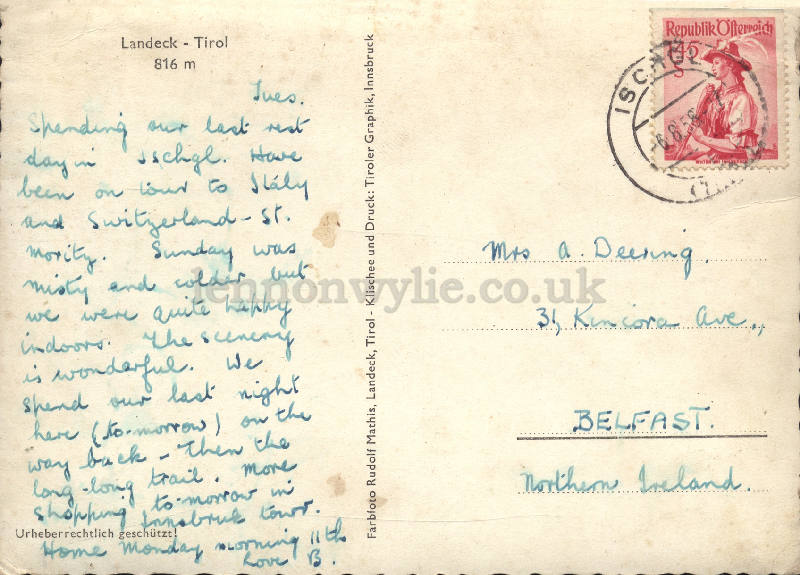 Landeck - Tirol
816 m
Tues.
Spending our last rest
day in Ischgl. Have
been on tour to Italy
and Switzerland - St.
Moritz. Sunday was
misty and colder but
we were quite happy
indoors. The scenery
is wonderful. We
spend our last night
here (to-morrow) on the
way back - Then the
long-long trail. More
shopping to-morrow in
Innsbruk town.
Urheberrechtlich geschützt!
Home Monday morning 11th
Love B.
Farbfoto Rudolf Mathis, Landeck, Tirol - Klischee und Druck: Tiroler Graphik, Innsbruck
Republik Österreich
1.45
S
ISCHGL
-6.8.58
Mrs A. Deering,
31, Kincora Ave.,
BELFAST.
Northern Ireland.
lennonwylie.co.uk